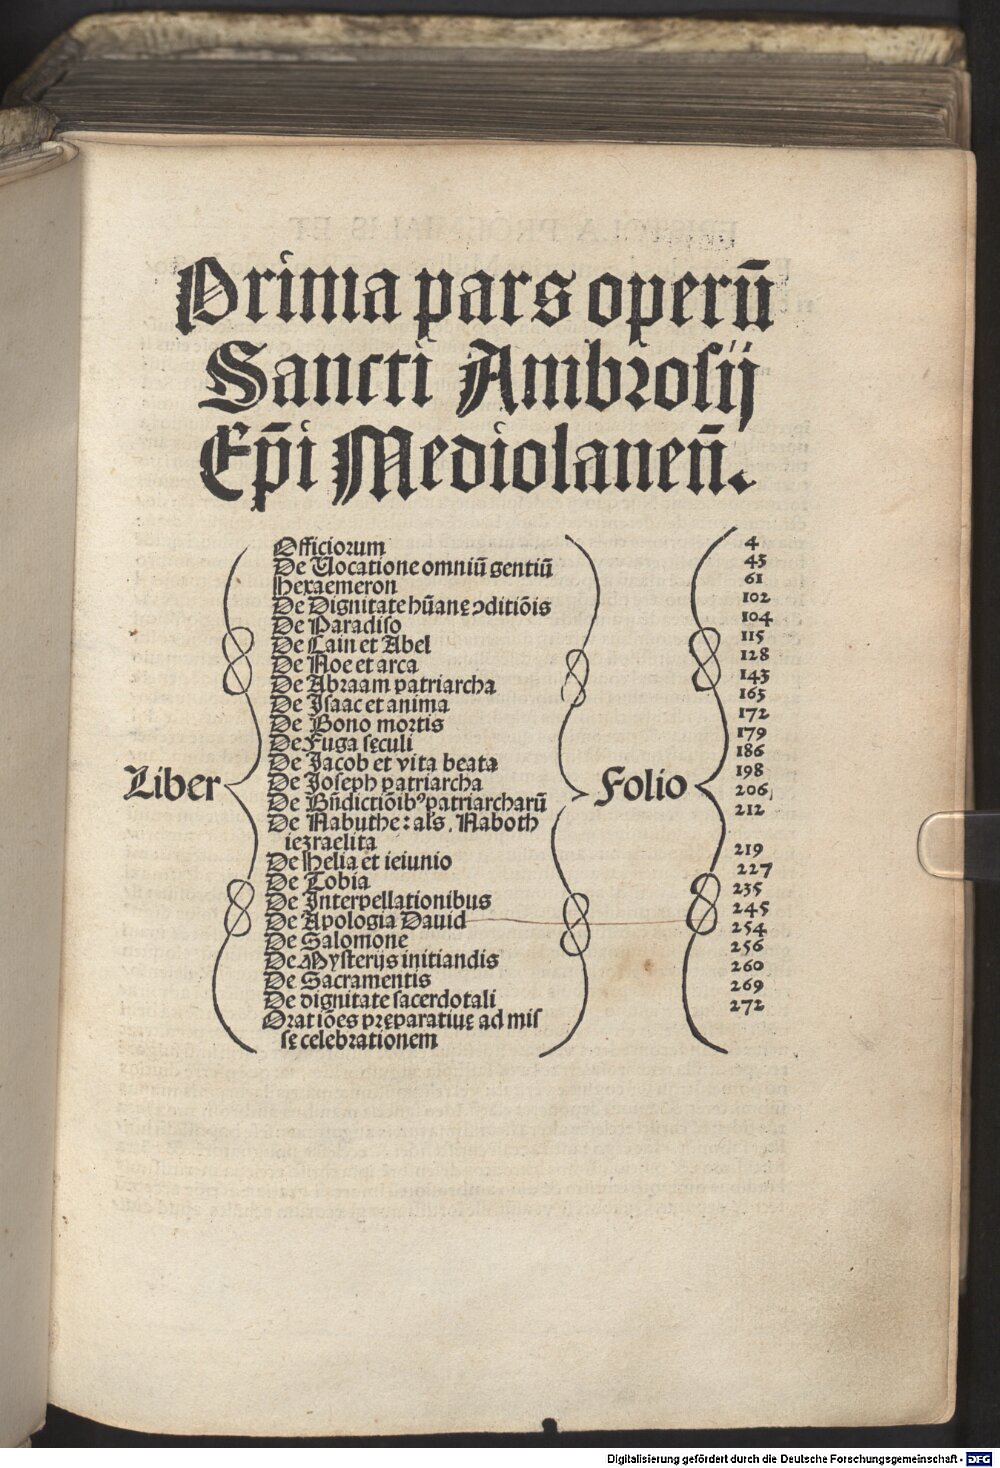 Prima pars operū
Sancti Ambrosij
Ep̄i Mediolaneñ.
Liber
Officiorum
De Vocatione omniū gentiū
Hexaemeron
De Dignitate hūanę ↄditiōis
De Paradiso
De Cain et Abel
De Noe et arca
De Abraam patriarcha
De Isaac et anima
De Bono mortis
De Fuga sęculi
De Jacob et vita beata
De Joseph patriarcha
De Bn̄dictiōibꝰ patriarcharū
De Nabuthe: als. Naboth
iezraelita
De Helia et ieiunio
De Tobia
De Interpellationibus
De Apologia Dauid
De Salomone
De Mysterijs initiandis
De Sacramentis
De dignitate sacerdotali
Oratiōes pręparatiuę ad mis
sę celebrationem
Folio
4
45
61
102
104
115
128
143
165
172
179
186
198
206
212
219
227
235
245
254
256
260
269
272
Digitalisierung gefördert durch die Deutsche Forschungsgemeinschaft - DFG